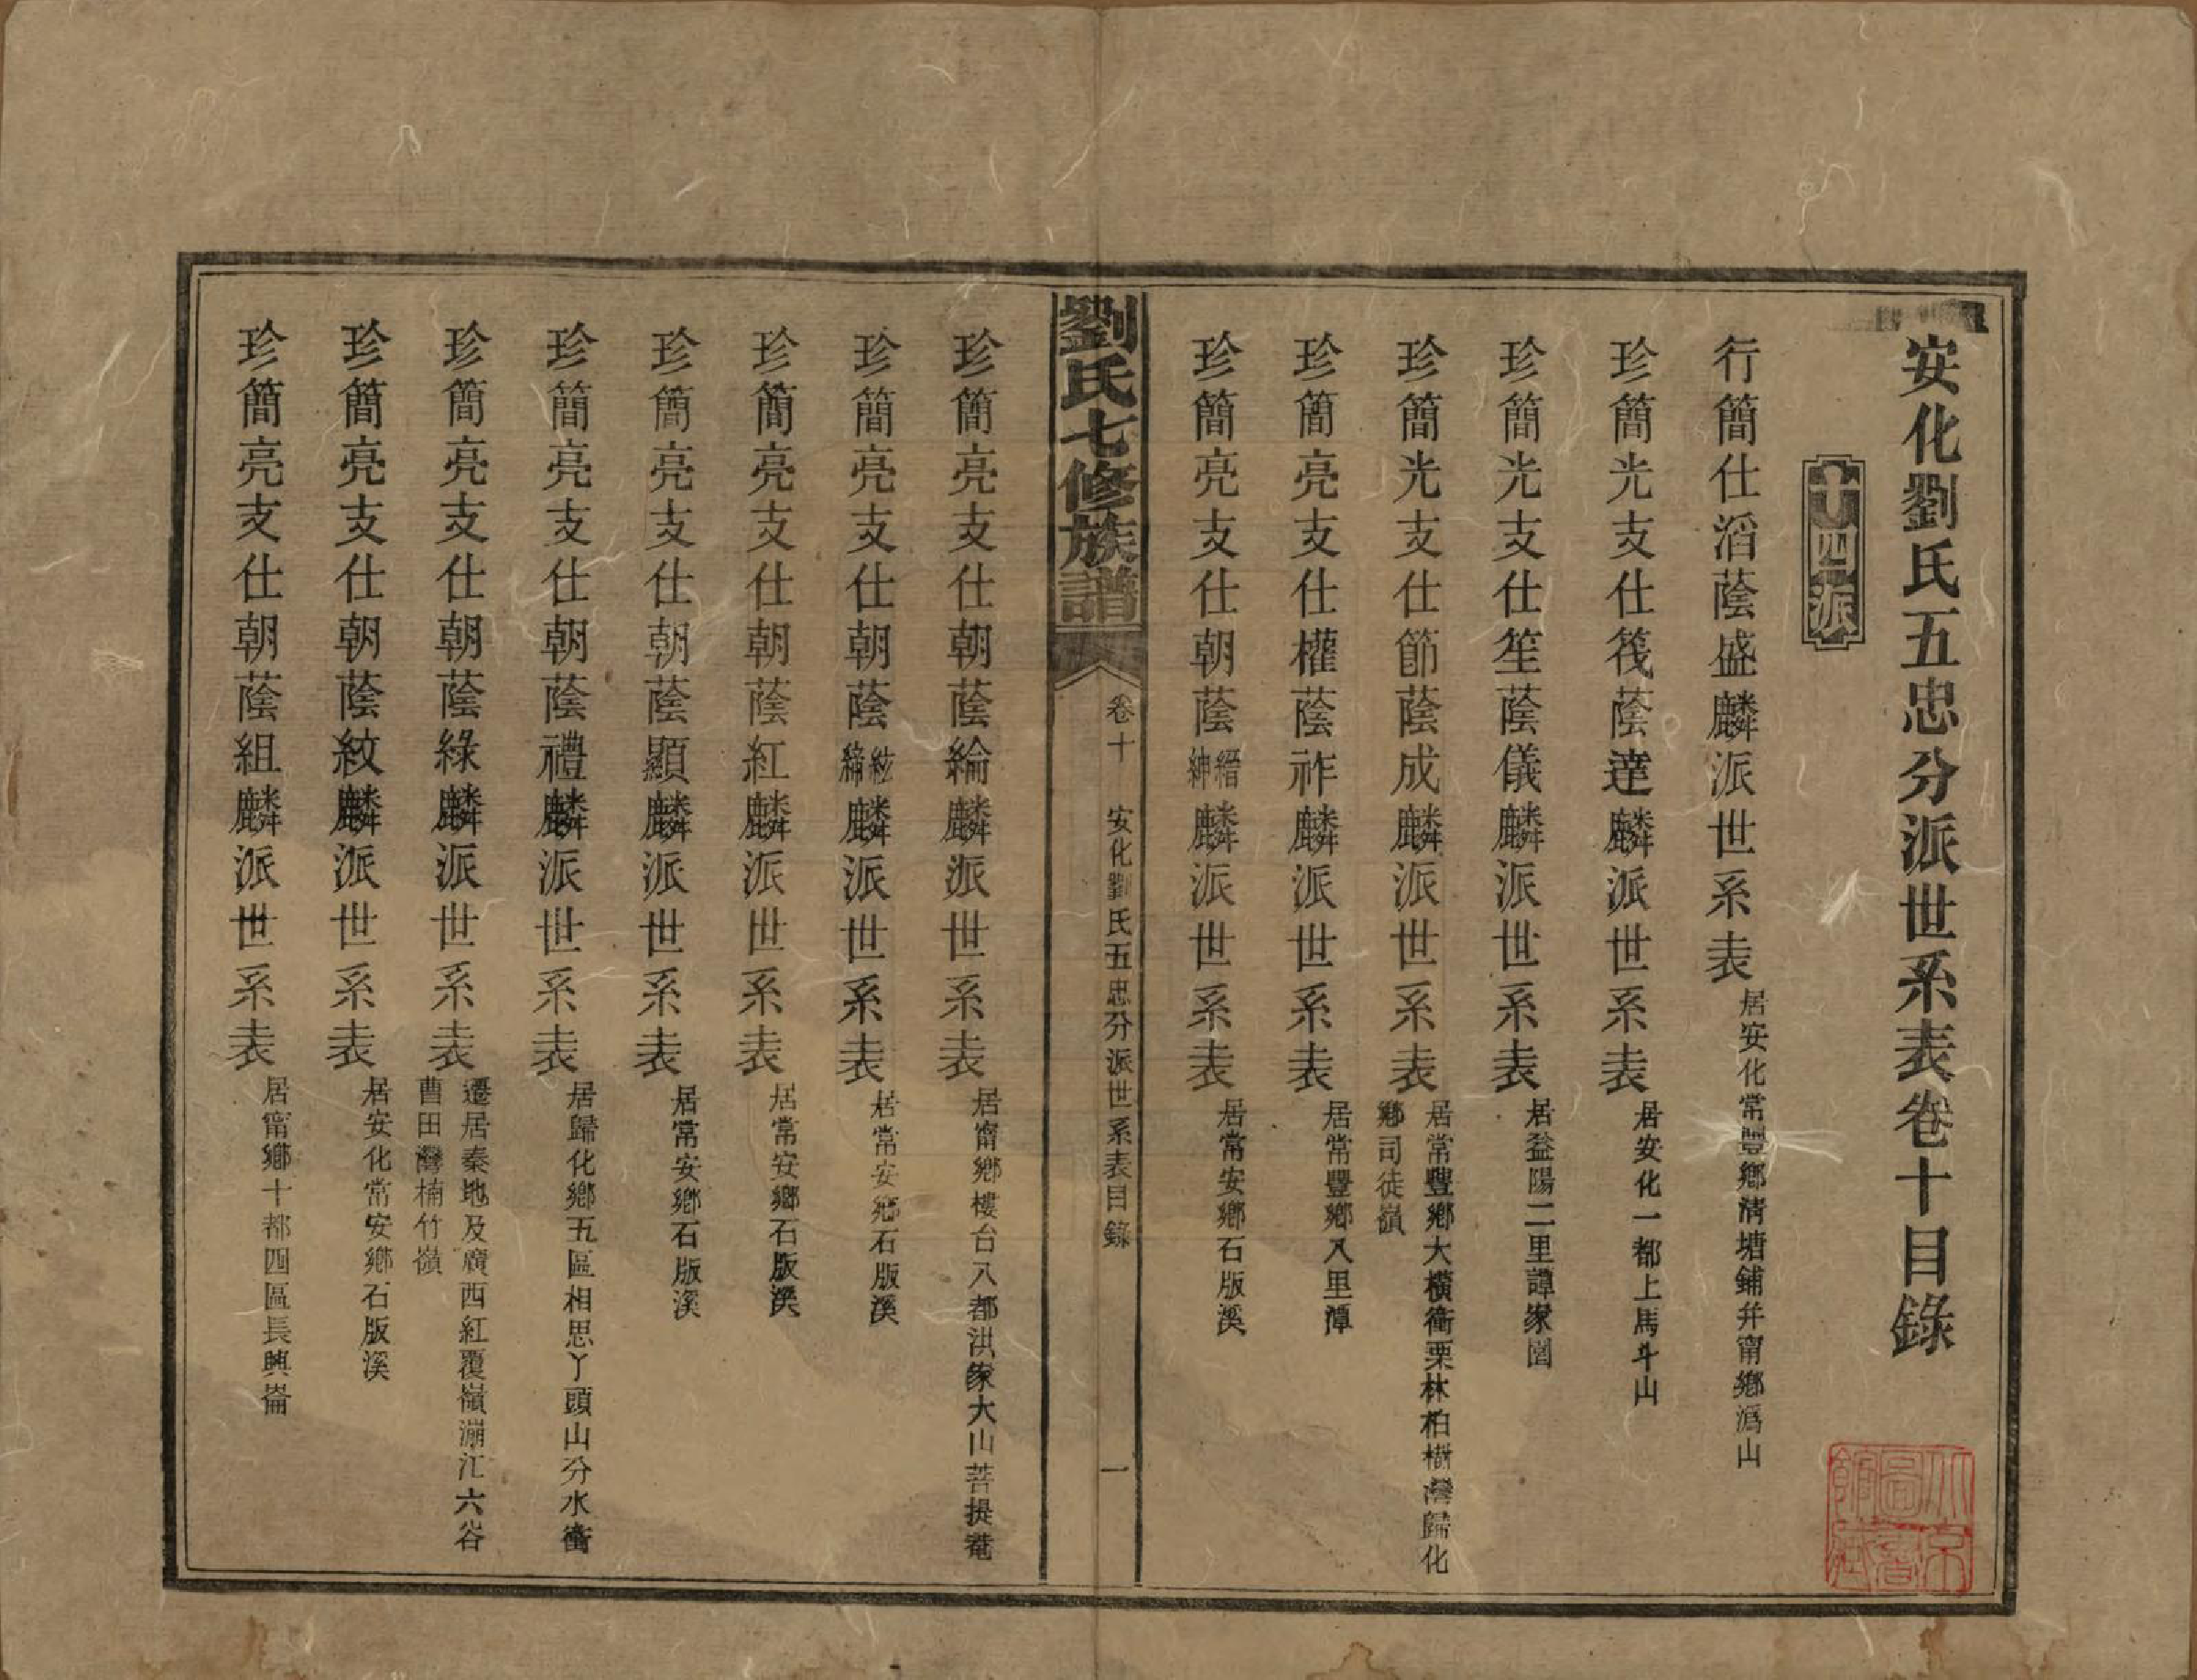 安化劉氏五忠分派世系表卷十目錄
十四派
行簡仕滔蔭盛麟派世系表 居安化常豐鄉清塘鋪弁甯鄉溈山
珍簡光支仕筏蔭達麟派世系表 居安化一都上馬斗山
珍簡光支仕笙蔭儀麟派世系表 居益陽二里譚家園
珍簡光支仕節蔭成麟派世系表 居常豐鄉大橫衝栗林柏樹灣歸化
鄉司徒嶺
珍簡亮支仕權蔭祚麟派世系表 居常豐鄉八里潭
珍簡亮支仕朝蔭縉紳麟派世系表 居常安鄉石版溪
劉氏七修族譜
卷十 安化劉氏五忠分派世系表目錄 一
珍簡亮支仕朝蔭綸麟派世系表 居甯鄉樓台八都洪家大山菩提菴
珍簡亮支仕朝蔭絃締麟派世系表 居常安鄉石版溪
珍簡亮支仕朝蔭紅麟派世系表 居常安鄉石版溪
珍簡亮支仕朝蔭顯麟派世系表 居常安鄉石版溪
珍簡亮支仕朝蔭禮麟派世系表 居歸化鄉五區相思丫頭山分水衝
珍簡亮支仕朝蔭綠麟派世系表 遷居秦地及廣西紅覆嶺漰江六谷
曹田灣楠竹嶺
珍簡亮支仕朝蔭紋麟派世系表 居安化常安鄉石版溪
珍簡亮支仕朝蔭組麟派世系表 居甯鄉十都四區長興崙
北京
圖書
館藏